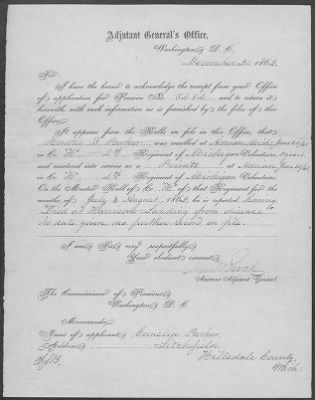 Adjutant General's Office,
Washington, D. C.
December 20, 1862.
Sir:
I have the honor to acknowledge the receipt from your Office
of application for Pension No. and to return it
herewith, with such information as is furnished by the files of this
Office.
It appears from the Rolls on file in this Office, that
Horatio B. Parker was enrolled at Adrian, Mich. June 20/61
in Co. "K", 4th Regiment of Michigan
and mustered into service as a Private at Adrian June 20/61
in Co. "K", 4th Regiment of Michigan Volunteers.
On the Muster Roll of Co. "K" of that Regiment for the
months of July & August, 1862, he is reported having
"Died at Harrison's Landing from disease"
No date given, no further record on file.
I am, Sir, very respectfully,
Your obedient servant,
Assistant Adjutant General.
The Commissioner of Pensions,
Washington, D. C.
Memoranda:
Name of applicant, Cornelia Parker
Address, Litchfield
Hillsdale County
Mich.